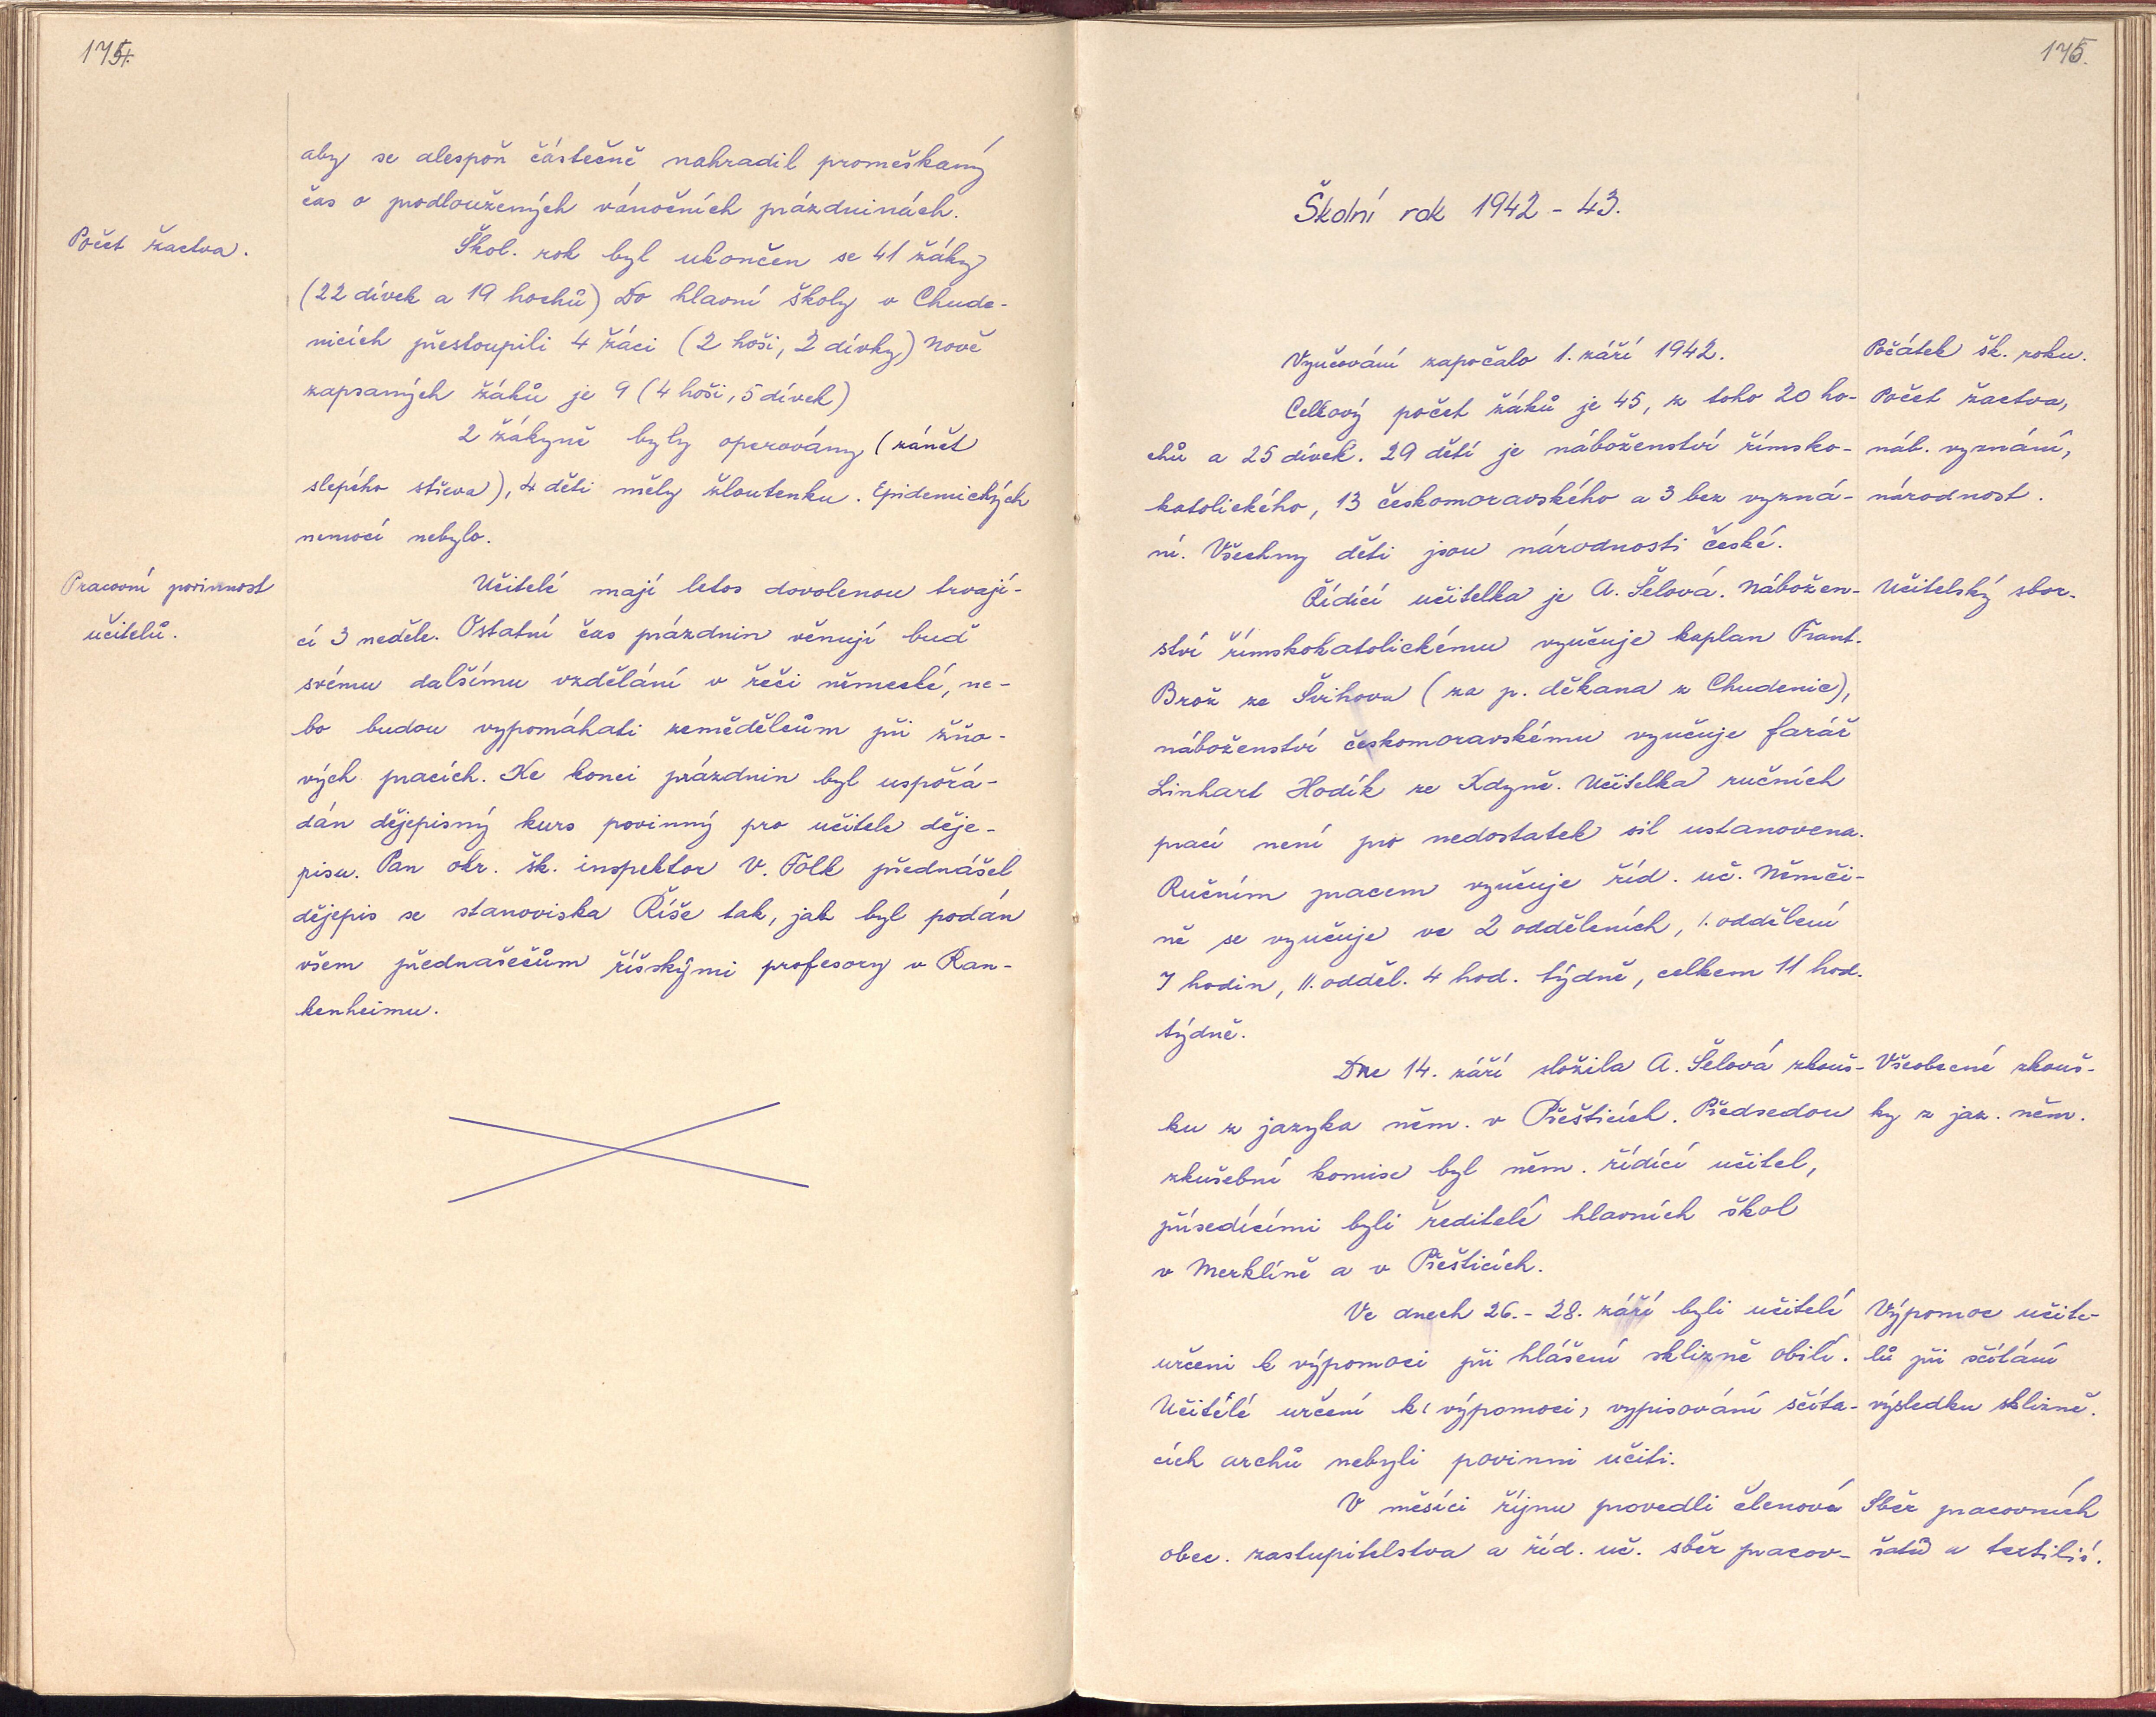 174.
aby se alespoň částečně nahradil promeškaný
čas o prodloužených vánočních prázdninách.
Počet žactva.
Škol. rok byl ukončen se 41 žáky
(22 dívek a 19 hochů) Do hlavní školy v Chude-
nicích přestoupili 4 žáci (2 hoši, 2 dívky) Nově
zapsaných žáků je 9 (4 hoši, 5 dívek)
2 žákyně byly operovány (zánět
slepého střeva), 4 děti měly žloutenku. Epidemických
nemocí nebylo.
Pracovní povinnost
učitelů.
Učitelé mají letos dovolenou trvají-
cí 3 neděle. Ostatní čas prázdnin věnují buď
svému dalšímu vzdělání v řeči německé, ne-
bo budou vypomáhati zemědělcům při žňo-
vých pracích. Ke konci prázdnin byl uspořá-
dán dějepisný kurs povinný pro učitele děje-
pisu. Pan okr. šk. inspektor V. Folk přednášel
dějepis se stanoviska Říše tak, jak byl podán
všem přednašečům říšskými profesory v Ran-
kenheimu.
175.
Školní rok 1942 - 43.
Vyučování započalo 1. září 1942.
Počátek šk. roku.
Celkový počet žáků je 45, z toho 20 ho-
Počet žactva,
chů a 25 dívek. 29 dětí je náboženství římsko-
náb. vyznání,
katolického, 13 českomoravského a 3 bez vyzná-
národnost.
ní. Všechny děti jsou národnosti české.
Řídící učitelka je A. Šelová. Nábožen-
Učitelský sbor.
ství římskokatolickému vyučuje kaplan Frant.
Brož ze Švihova (za p. děkana z Chudenic),
náboženství českomoravskému vyučuje farář
Linhart Hodík ze Kdyně. Učitelka ručních
prací není pro nedostatek sil ustanovena.
Ručním pracem vyučuje říd. uč. Němči-
ně se vyučuje ve 2 odděleních, I. oddělení
7 hodin, II. odděl. 4 hod. týdně, celkem 11 hod.
týdně.
Dne 14. září složila A. Šelová zkouš-
Všeobecné zkouš-
ku z jazyka něm. v Přešticích. Předsedou
ky z jaz. něm.
zkušební komise byl něm. řídící učitel,
přísedícími byli ředitelé hlavních škol
v Merklíně a v Přešticích.
Ve dnech 26. - 28. září byli učitelé
Výpomoc učite-
určeni k výpomoci při hlášení sklizně obilí.
lů při sčítání
Učitélé určení k výpomoci, vypisování sčíta-
výsledku sklizně.
cích archů nebyli povinni učiti.
V měsíci říjnu provedli členové
Sběr pracovních
obec. zastupitelstva a říd. uč. sběr pracov-
šatů a textilií.